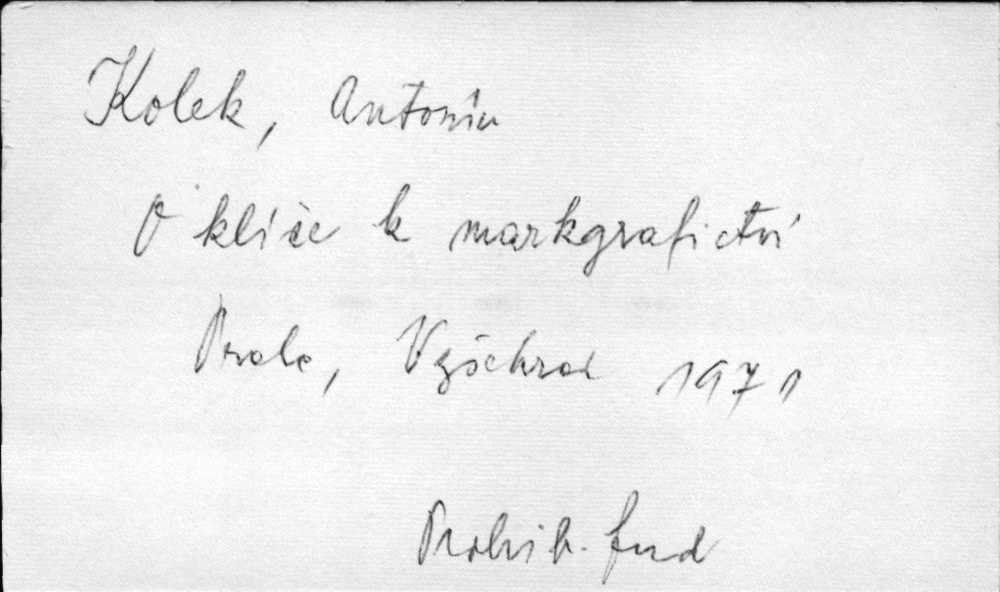 Kolek, Antonín
O klíče k markgrafictví
Praha, Vyšehrad 1971
Prohib. fond